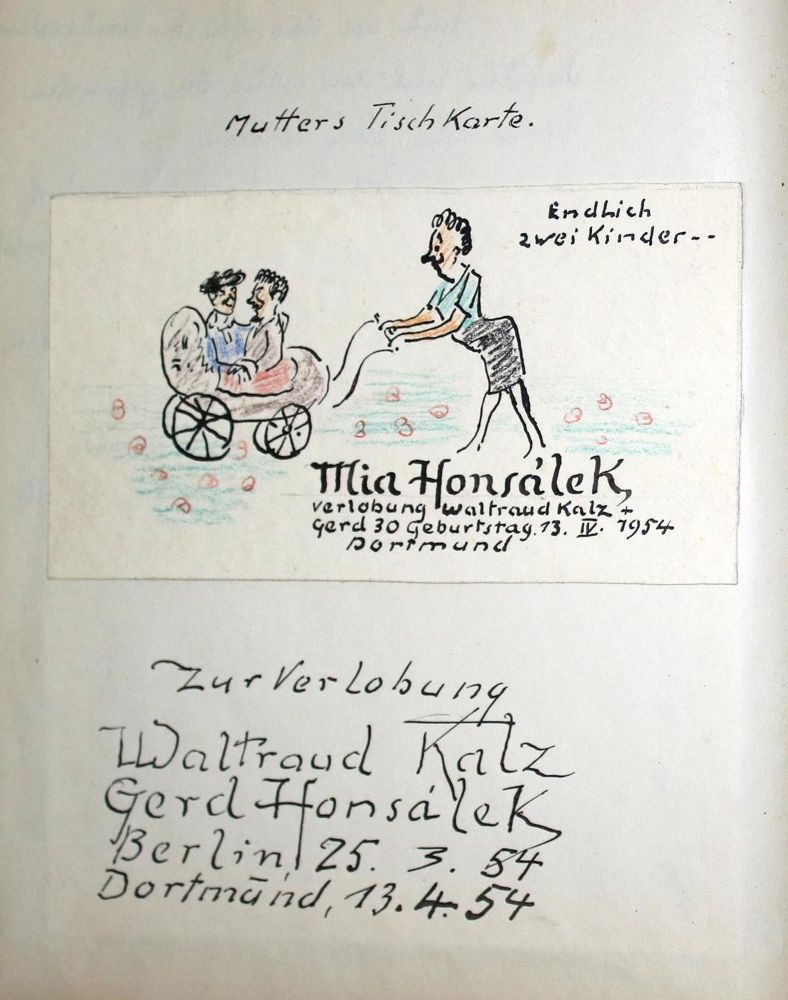 Mutters Tischkarte.
Endlich
zwei Kinder--
Mia Honsálek,
Verlobung Waltraud Kalz +
Gerd 30 Geburtstag. 13. IV. 1954
Dortmund
Zur Verlobung
Waltraud Kalz
Gerd Honsálek
Berlin, 25. 3. 54
Dortmund, 13. 4. 54